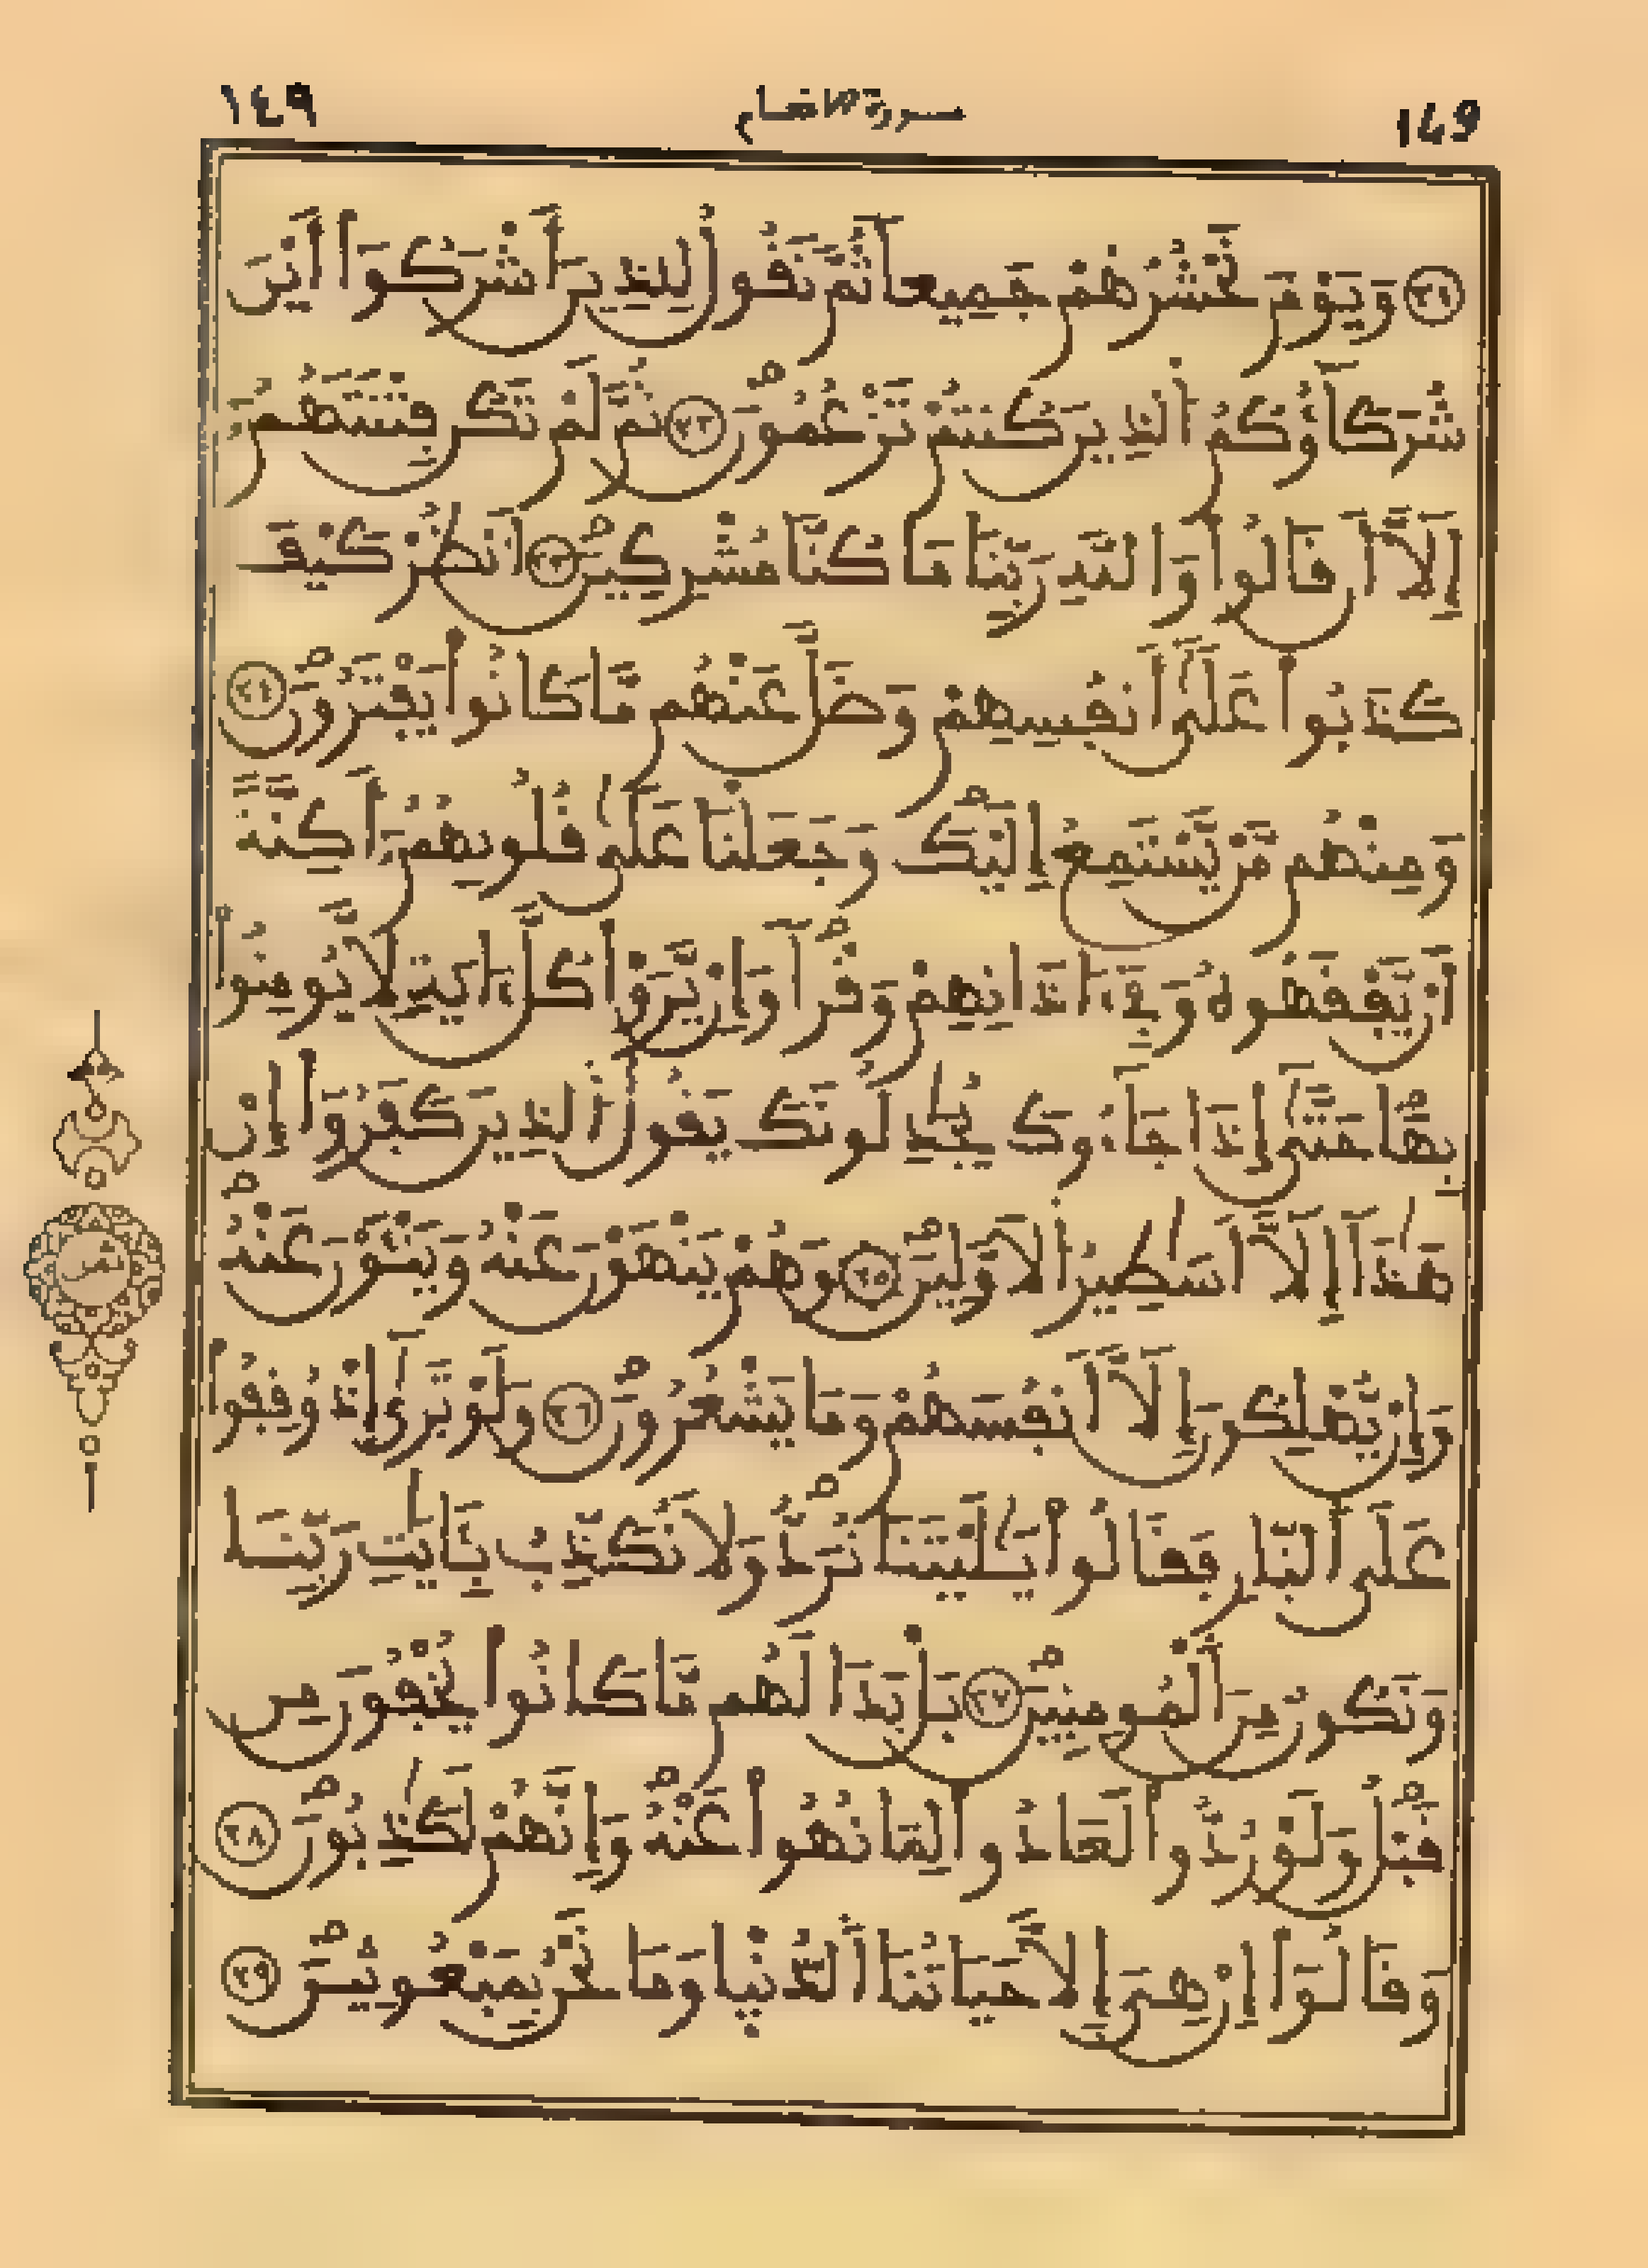 ١٤٩ سورة الانعام ١٤٩
٢١ وَيَوْمَ نَحْشُرُهُمْ جَمِيعاً ثُمَّ نَقُولُ لِلذِينَ أَشْرَكُوٓاْ أَيْنَ
شُرَكَآؤُكُمُ الذِينَ كُنتُمْ تَزْعُمُونَ ٢٢ ثُمَّ لَمْ تَكُن فِتْنَتَهُمُۥٓ
إِلَّآ أَن قَالُواْ وَاللَّهِ رَبِّنَا مَا كُنَّا مُشْرِكِينَ ٢٣ اَنظُرْ كَيْفَ
كَذَبُواْ عَلَىٰٓ أَنفُسِهِمْ وَضَلَّ عَنْهُم مَّا كَانُواْ يَفْتَرُونَ ٢٤
وَمِنْهُم مَّنْ يَّسْتَمِعُ إِلَيْكَ وَجَعَلْنَا عَلَىٰ قُلُوبِهِمُۥٓ أَكِنَّةً
أَنْ يَّفْقَهُوهُ وَفِےٓ ءَاذَانِهِمْ وَقْراً وَإِنْ يَّرَوْاْ كُلَّ ءَايَةٍ لَّا يُومِنُواْ
بِهَا حَتَّىٰٓ إِذَا جَآءُوكَ يُجَٰدِلُونَكَ يَقُولُ الذِينَ كَفَرُوٓاْ إِنْ
هَٰذَآ إِلَّآ أَسَٰطِيرُ الَاوَّلِينَ ٢٥ وَهُمْ يَنْهَوْنَ عَنْهُ وَيَنْـَٔوْنَ عَنْهُ
وَإِنْ يُّهْلِكُونَ إِلَّآ أَنفُسَهُمْ وَمَا يَشْعُرُونَ ٢٦ وَلَوْ تَرَىٰٓ إِذْ وُقِفُواْ
عَلَى النَّارِ فَقَالُواْ يَٰلَيْتَنَا نُرَدُّ وَلَا نُكَذِّبُ بِـَٔايَٰتِ رَبِّنَا
وَنَكُونُ مِنَ الْمُومِنِينَ ٢٧ بَلْ بَدَا لَهُم مَّا كَانُواْ يُخْفُونَ مِن
قَبْلُ وَلَوْ رُدُّواْ لَعَادُواْ لِمَا نُهُواْ عَنْهُ وَإِنَّهُمْ لَكَٰذِبُونَ ٢٨
وَقَالُوٓاْ إِنْ هِيَ إِلَّا حَيَاتُنَا الدُّنْيَا وَمَا نَحْنُ بِمَبْعُوثِينَ ٢٩
ثمن